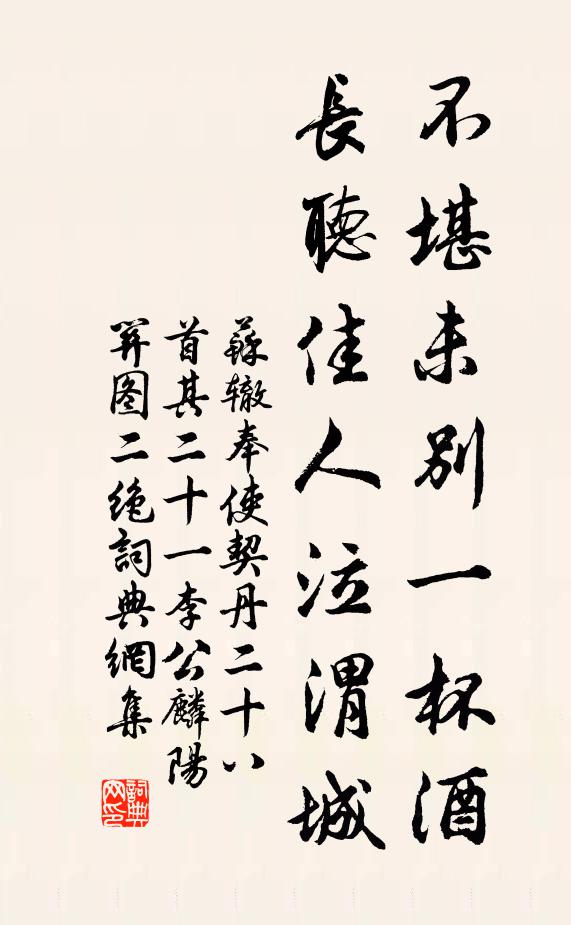 不堪未别一杯酒
長聽佳人泣渭城
蘇辙奉使契丹二十八
首其二十一李公麟陽
關图二绝詞典網集
詞典网印